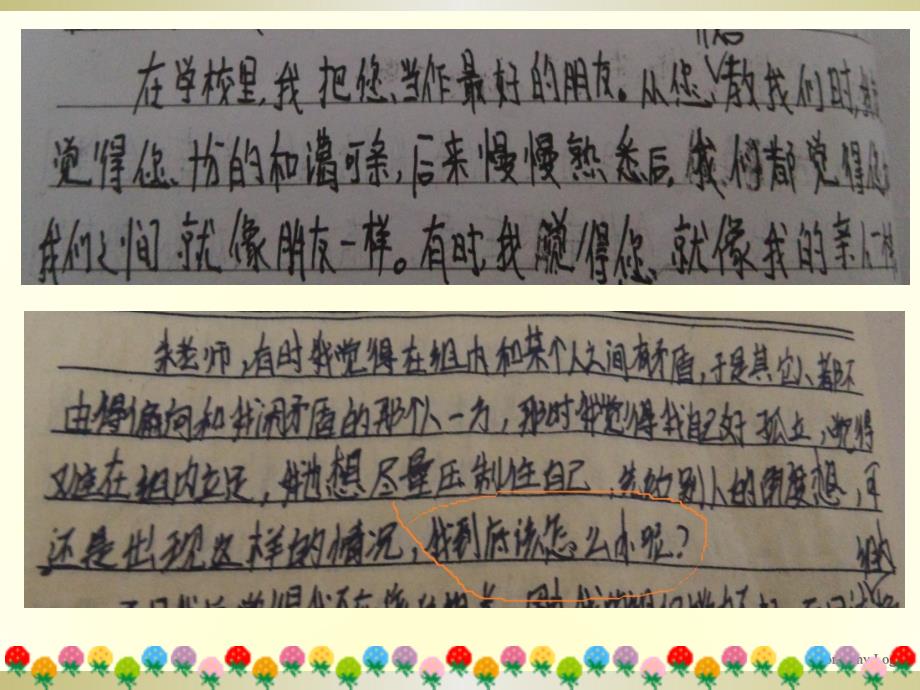 后
在学校里,我把您当作最好的朋友。从您教我们时,就
觉得您十分的和蔼可亲,后来慢慢熟悉后,我们都觉得您
我们之间就像朋友一样。有时,我觉得您就像我的亲人一样
朱老师,有时我觉得在组内和某个人之间有矛盾,于是其它人都不
由得偏向和我闹矛盾的那个人一方,那时我觉得我自己好孤立,觉得
又难在组内立足,我也想尽量压制住自己,先的别人的角度想,可
还是出现这样的情况,我到底该怎么办呢?